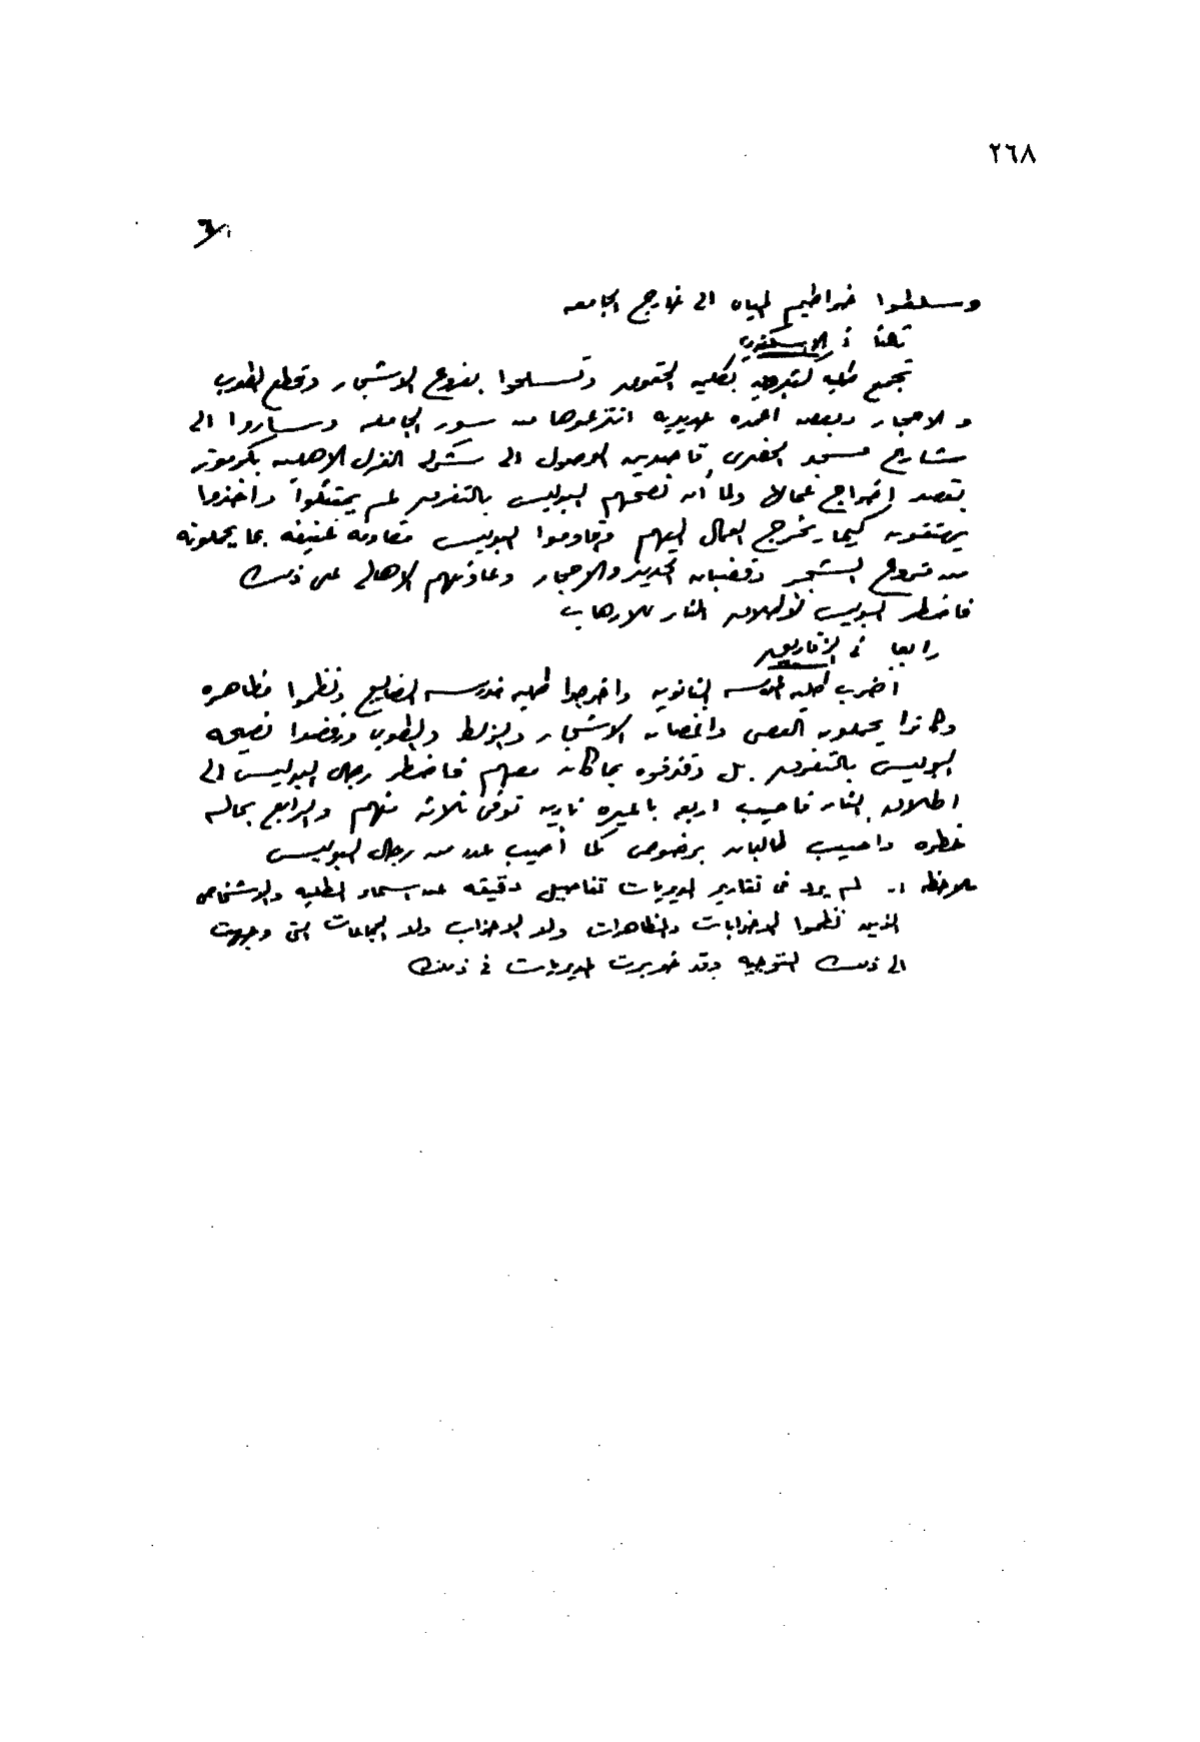 ٢٦٨
٦
وسلطوا خراطيم المياه الى خارج الجامعه
ثالثا فى الاسكندريه
تجمع طلبه كثيرون بكليه الحقوق وتسلحوا بفروع الاشجار وقطع الطوب
والاحجار وبعض اعمده حديديه انتزعوها من سور الجامعه وساروا الى
شارع مسجد الخضرى قاصدين الوصول الى شركه الغزل الاهليه بكرموز
بقصد إخراج عمالها ولما أن نصحهم البوليس بالتفرق لم يمتثلوا واخذوا
يهتفون كيما يخرج العمال اليهم وقاوموا البوليس مقاومه عنيفه بما يحملونه
من فروع الشجر وقضبان الحديد والاحجار وعاونهم الاهالى على ذلك
فاضطر البوليس لاطلاق النار للارهاب
رابعا فى الزقازيق
أضرب طلبه المدرسه الثانويه واخرجوا طلبه مدرسه الصنايع ونظموا مظاهره
وكانوا يحملون العصى واغصان الاشجار والزلط والطوب ورفضوا نصيحه
البوليس بالتفرق بل وقذفوه بما كان معهم فاضطر رجال البوليس الى
اطلاق النار فاصيب اربعه باعيره ناريه توفى ثلاثه منهم والرابع بحاله
خطره واصيب طالبان برضوض كما أصيب عدد من رجال البوليس
ملاحظه :- لم يرد فى تقارير المديريات تفاصيل دقيقه عن اسماء الطلبه والاشخاص
الذين نظموا الاضرابات والمظاهرات ولا الاحزاب ولا الجماعات التى وجهت
الى ذلك التوجيه وقد خوبرت المديريات فى ذلك